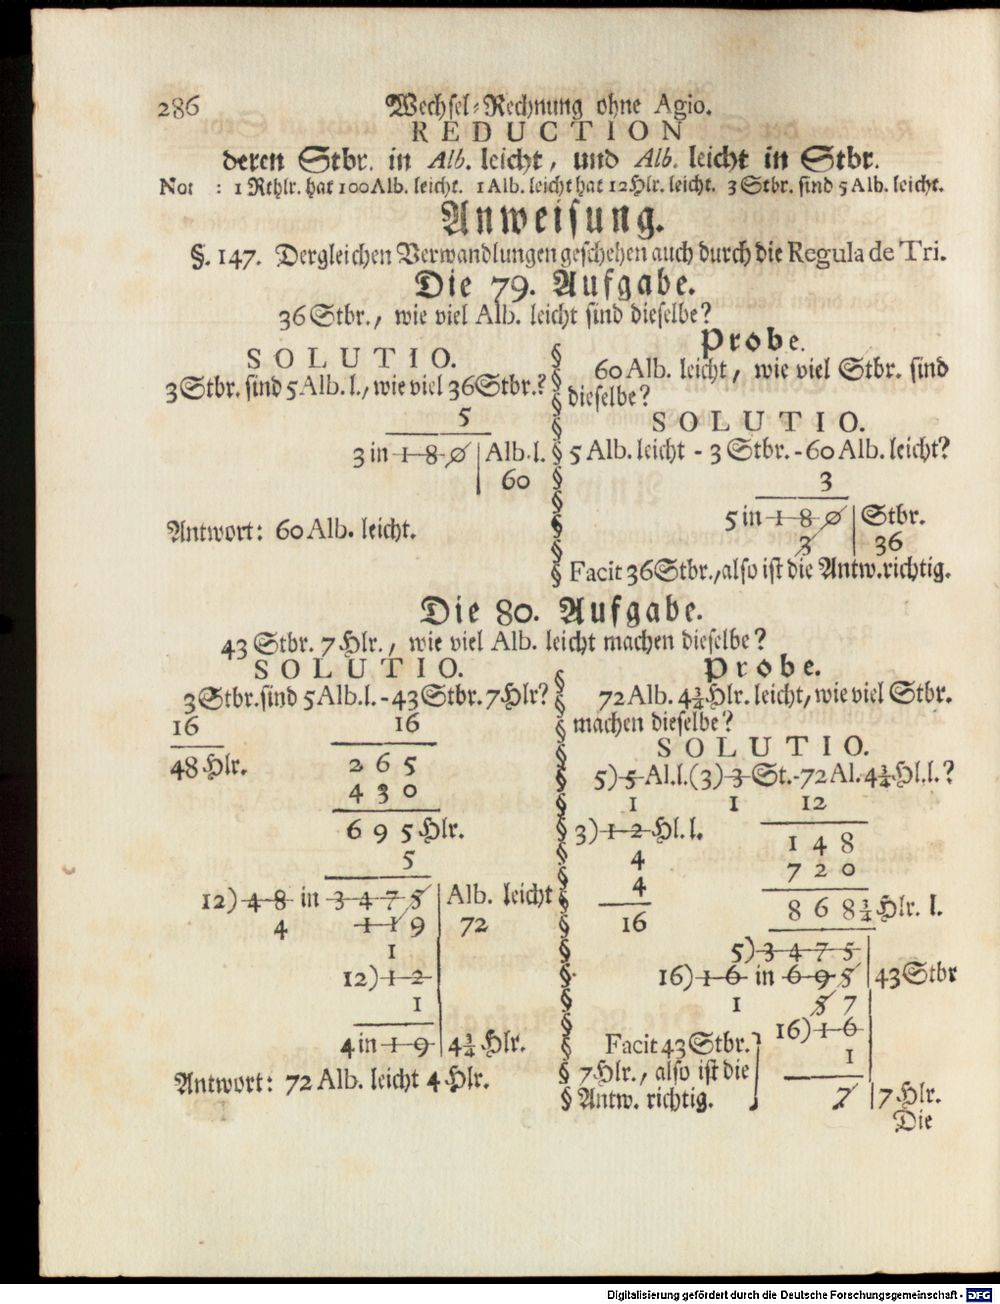 286 Wechsel-Rechnung ohne Agio.
REDUCTION
deren Stbr. in Alb. leicht, und Alb. leicht in Stbr.
Not : 1 Rthlr. hat 100 Alb. leicht. 1 Alb. leicht hat 12 Hlr. leicht. 3 Stbr. sind 5 Alb. leicht.
Anweisung.
§. 147. Dergleichen Verwandlungen geschehen auch durch die Regula de Tri.
Die 79. Aufgabe.
36 Stbr., wie viel Alb. leicht sind dieselbe?
SOLUTIO.
3 Stbr. sind 5 Alb. l., wie viel 36 Stbr.?
5
3 in 1 8 0 | Alb. l.
60
Antwort: 60 Alb. leicht.
Probe.
60 Alb. leicht, wie viel Stbr. sind
dieselbe?
SOLUTIO.
5 Alb. leicht - 3 Stbr. - 60 Alb. leicht?
3
5 in 1 8 0 | Stbr.
3 | 36
Facit 36 Stbr., also ist die Antw. richtig.
Die 80. Aufgabe.
43 Stbr. 7 Hlr., wie viel Alb. leicht machen dieselbe?
SOLUTIO.
3 Stbr. sind 5 Alb. l. - 43 Stbr. 7 Hlr?
16 16
48 Hlr. 2 6 5
4 3 0
6 9 5 Hlr.
5
12) 4 8 in 3 4 7 5 | Alb. leicht
4 1 1 9 | 72
1
12) 1 2
1
4 in 1 9 | 4¾ Hlr.
Antwort: 72 Alb. leicht 4 Hlr.
Probe.
72 Alb. 4¾ Hlr. leicht, wie viel Stbr.
machen dieselbe?
SOLUTIO.
5) 5 Al. l. (3) 3 St. - 72 Al. 4¾ Hl. l.?
1 1 12
3) 1 2 Hl. l. 1 4 8
4 7 2 0
4 8 6 8¾ Hlr. l.
16
5) 3 4 7 5
16) 1 6 in 6 9 5 | 43 Stbr
1 5 7
16) 1 6
1
7 | 7 Hlr.
Facit 43 Stbr.
7 Hlr., also ist die
Antw. richtig.
Die
Digitalisierung gefördert durch die Deutsche Forschungsgemeinschaft - DFG